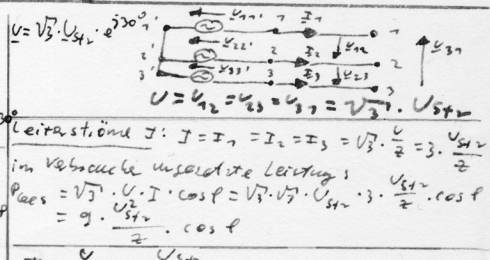 U = √3 · U_Str · e^j30°
U_11' 1 I_1 1
U_22' 2 I_2 U_12 2 U_31
U_33' 3 I_3 U_23 3
U = U_12 = U_23 = U_31 = √3 · U_Str
Leiterströme I: I = I_1 = I_2 = I_3 = √3 · U/Z = 3 · U_Str/Z
im Verbraucher umgesetzte Leistung:
P_ges = √3 · U · I · cos φ = √3 · √3 · U_Str · 3 · U_Str/Z · cos φ
= 9 · U²_Str/Z · cos φ